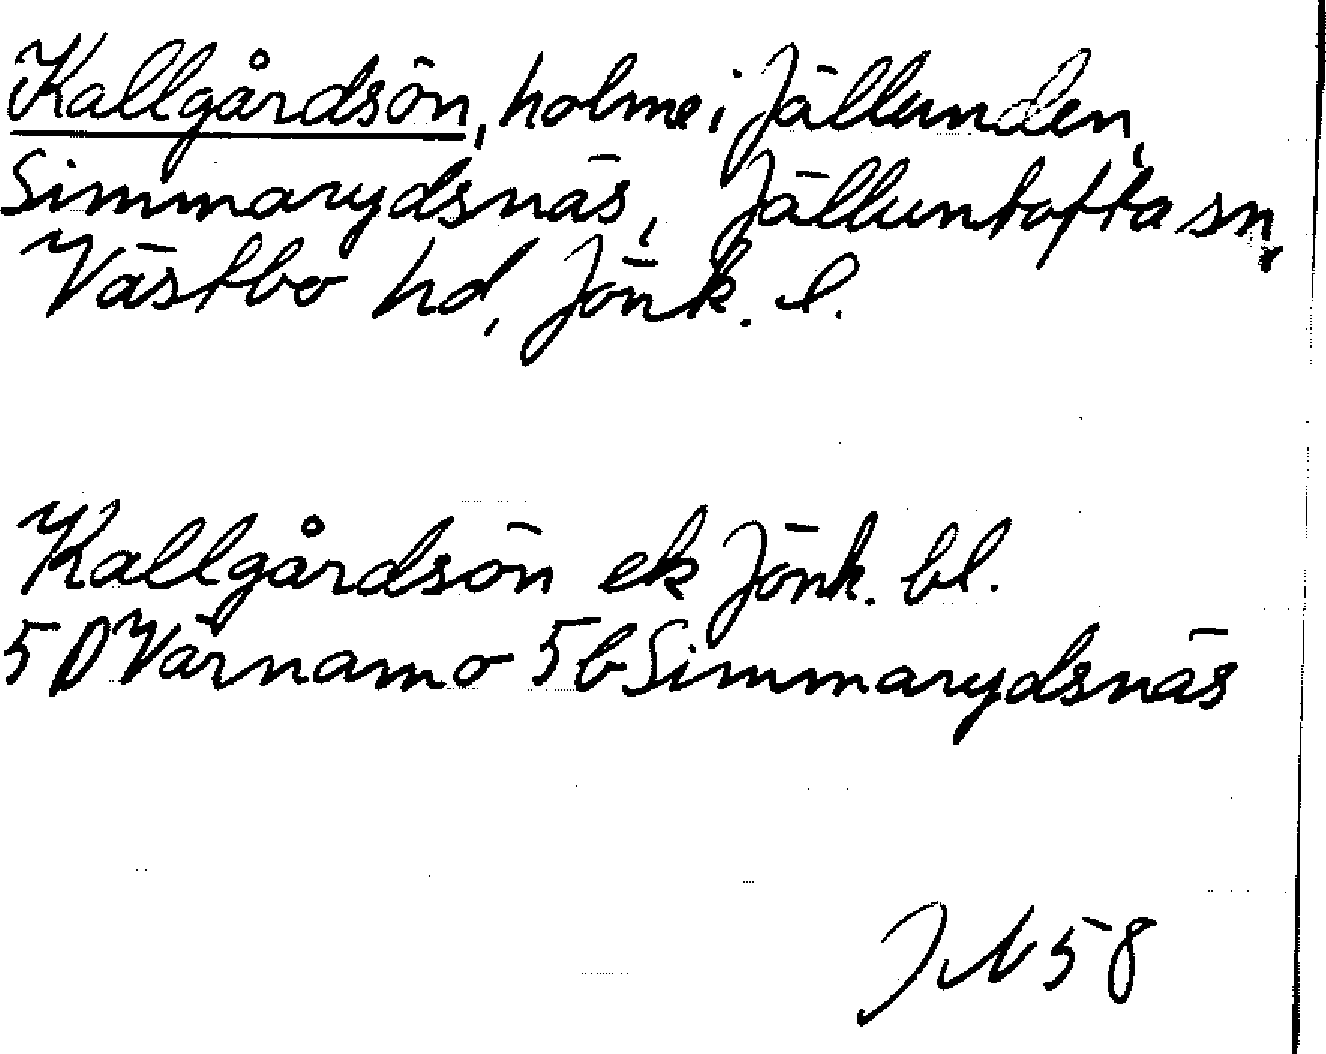 Kallgårdsön, holme i Jällunden,
Simmarydsnäs, Jälluntofta sn,
Västbo hd, Jönk. l.
Kallgårdsön ek Jönk. bl.
5 D Värnamo 5b Simmarydsnäs
58